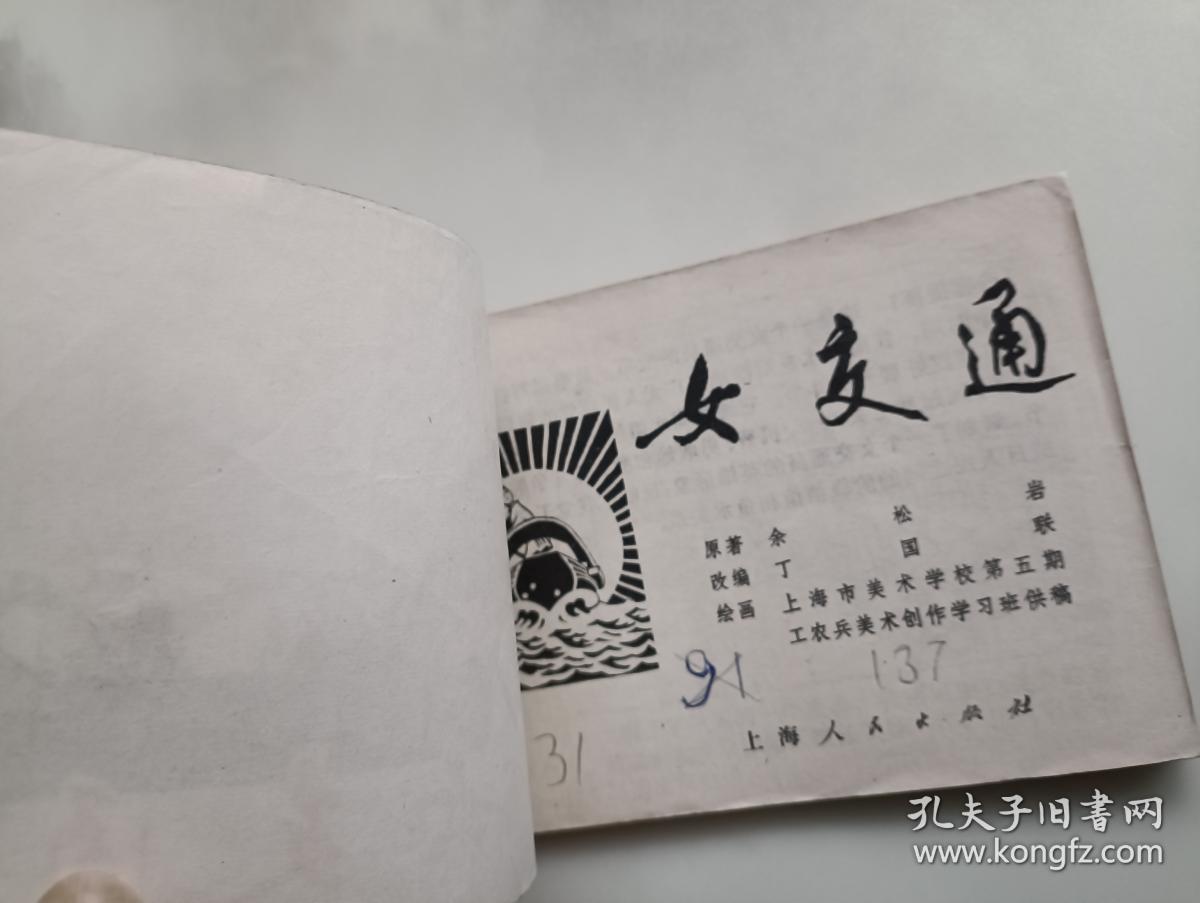 女交通
原著 余松岩
改编 丁国联
绘画 上海市美术学校第五期
工农兵美术创作学习班供稿
91
137
上海人民出版社
31
孔夫子旧书网
www.kongfz.com